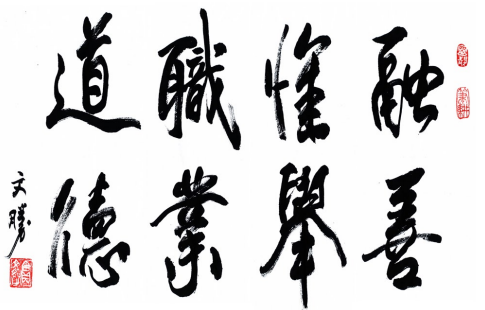 融善
惟舉
職業
道德
文勝